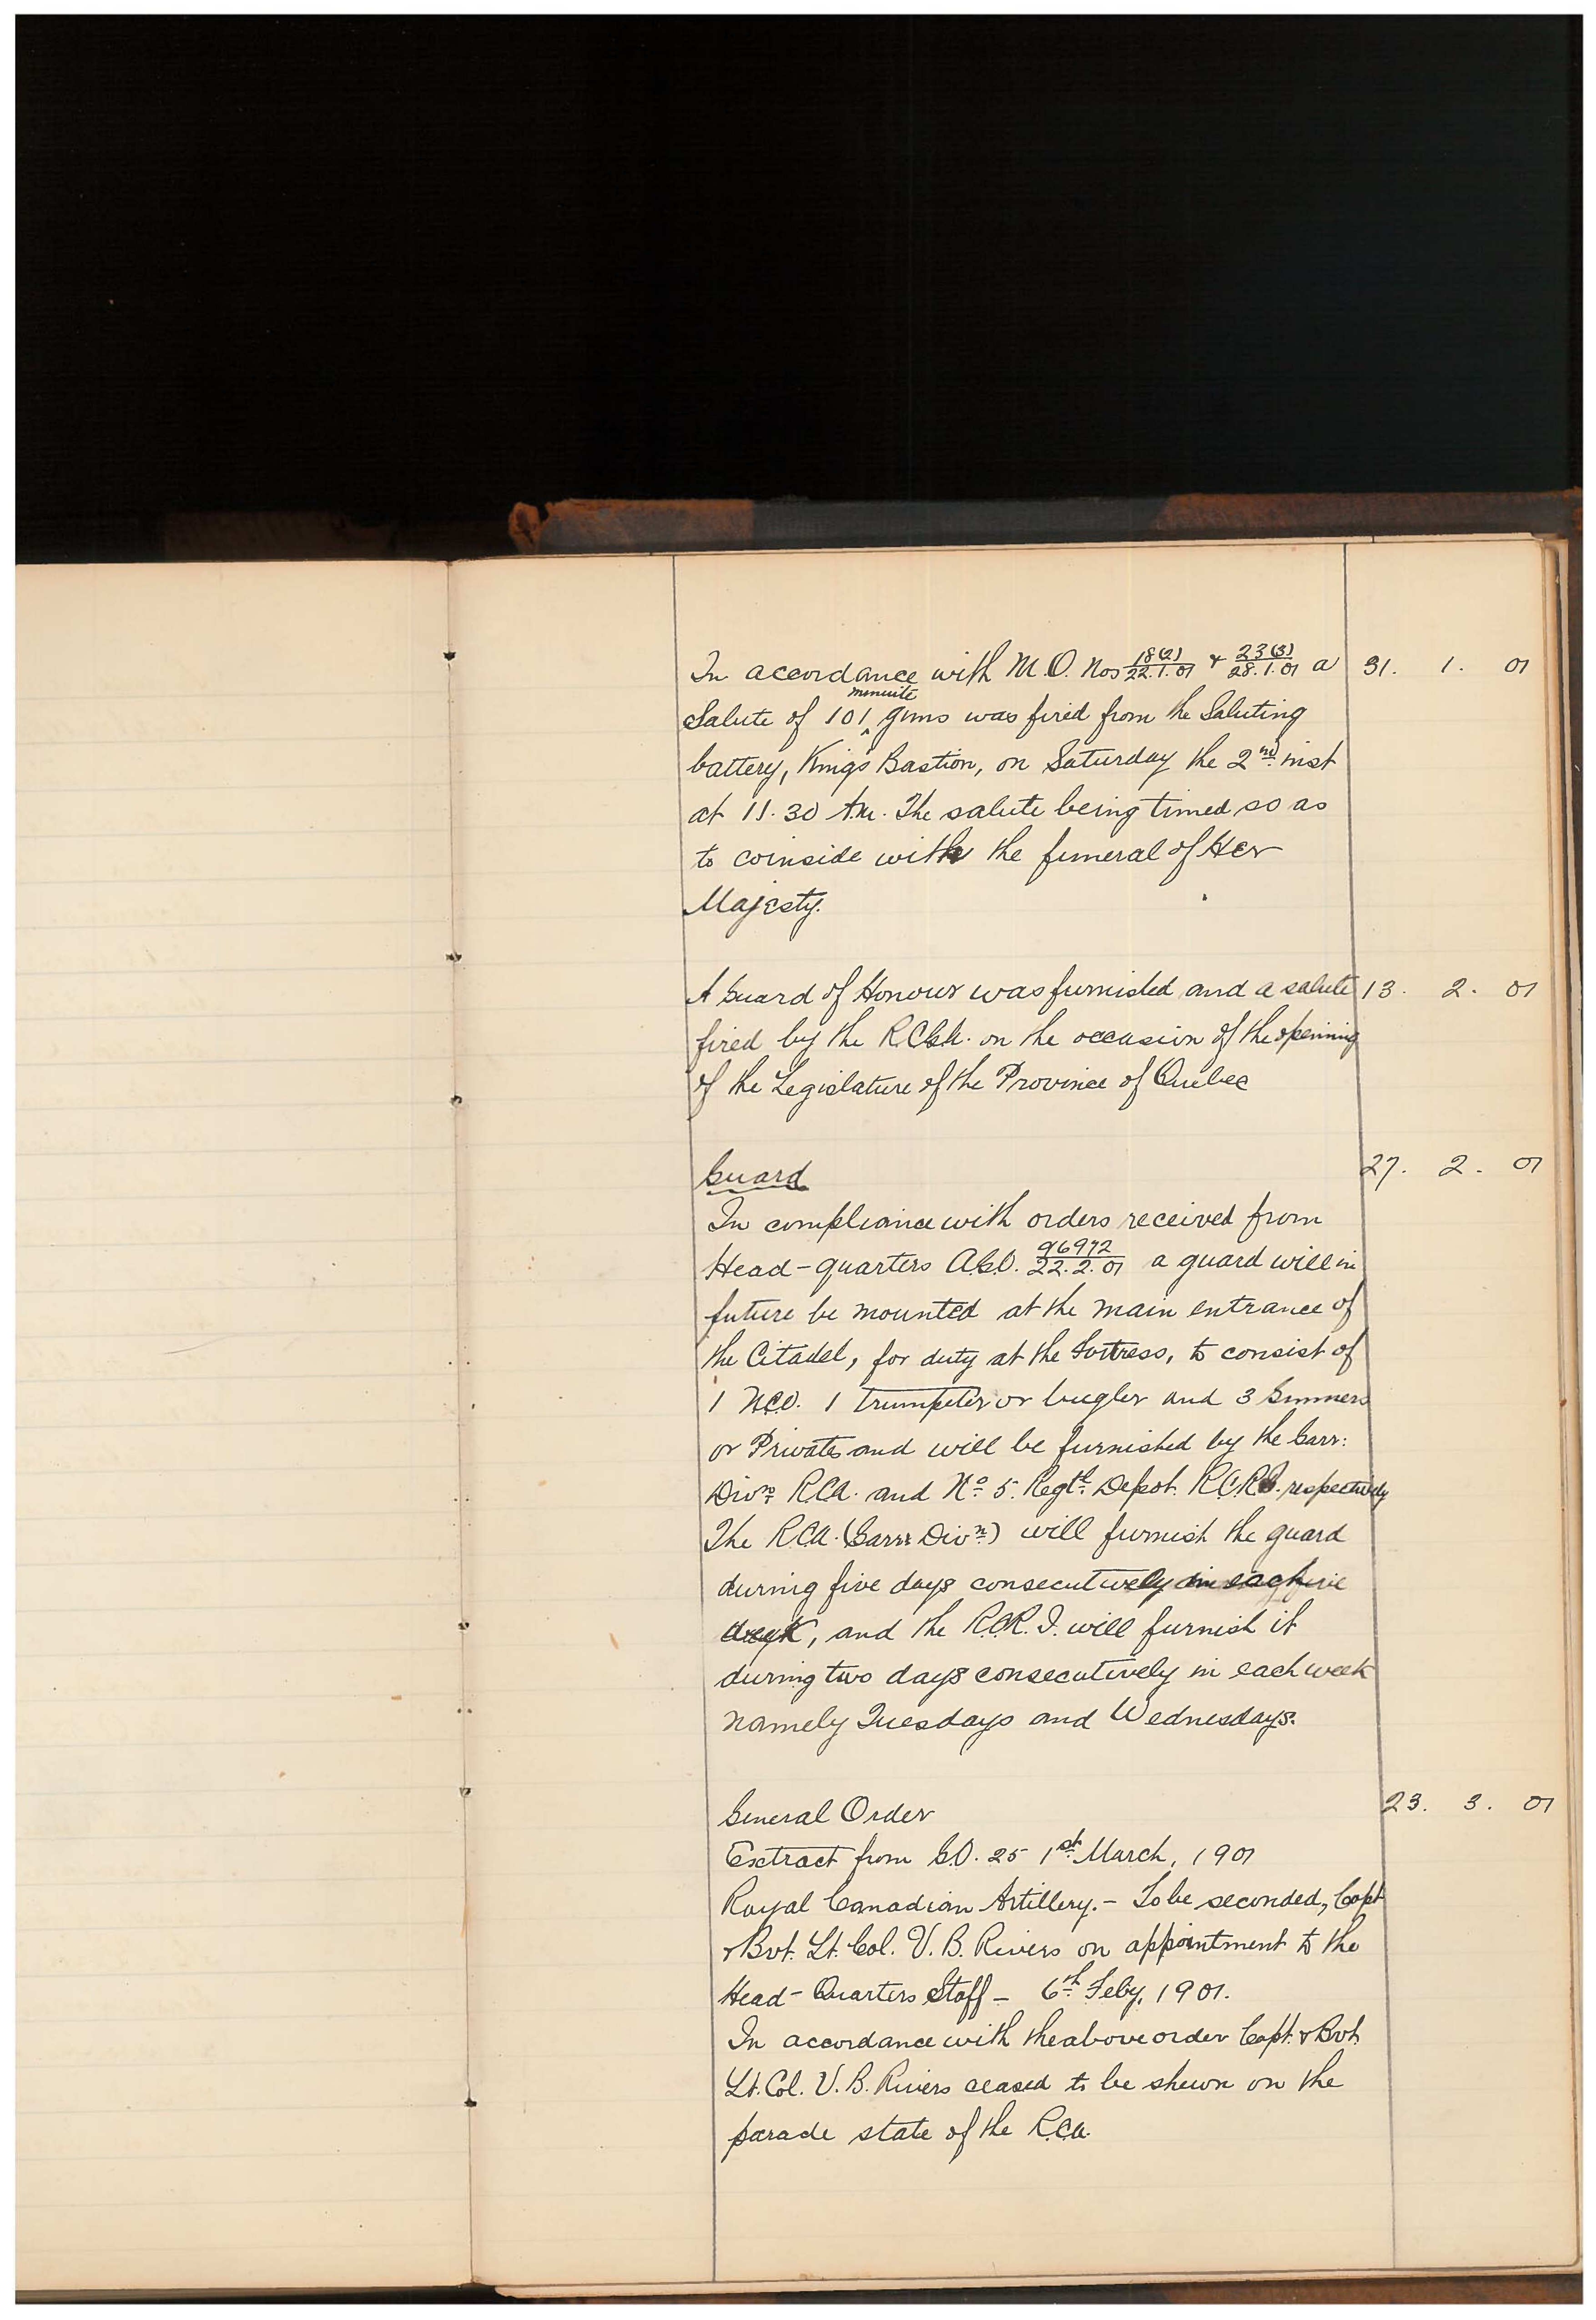 In accordance with M.O. Nos 18(2)/22.1.01 & 23(3)/28.1.01 a 31. 1. 01
minute
Salute of 101 guns was fired from the Saluting
battery, King's Bastion, on Saturday the 2nd inst
at 11.30 A.M. The salute being timed so as
to coinside with the funeral of Her
Majesty.
A Guard of Honour was furnished and a salute 13. 2. 01
fired by the R.C.G.A. on the occasion of the opening
of the Legislature of the Province of Quebec
Guard 27. 2. 01
In compliance with orders received from
Head-quarters A.G.O. 96972/22.2.01 a guard will in
future be mounted at the main entrance of
the Citadel, for duty at the Fortress, to consist of
1 N.C.O. 1 trumpeter or bugler and 3 Gunners
or Privates and will be furnished by the Garr:
Divn R.C.A. and No 5. Regtl Depot. R.C.R. respectively
The R.C.A. (Garrn Divn) will furnish the guard
during five days consecutively in each
week, and the R.C.R.I. will furnish it
during two days consecutively in each week
namely Tuesdays and Wednesdays.
General Order 23. 3. 01
Extract from G.O. 25 1st March, 1901
Royal Canadian Artillery. - To be seconded, Capt
& Bvt. Lt. Col. V. B. Rivers on appointment to the
Head-Quarters Staff - 6th Feby, 1901.
In accordance with the above order Capt. & Bvt.
Lt. Col. V. B. Rivers ceased to be shewn on the
parade state of the R.C.A.